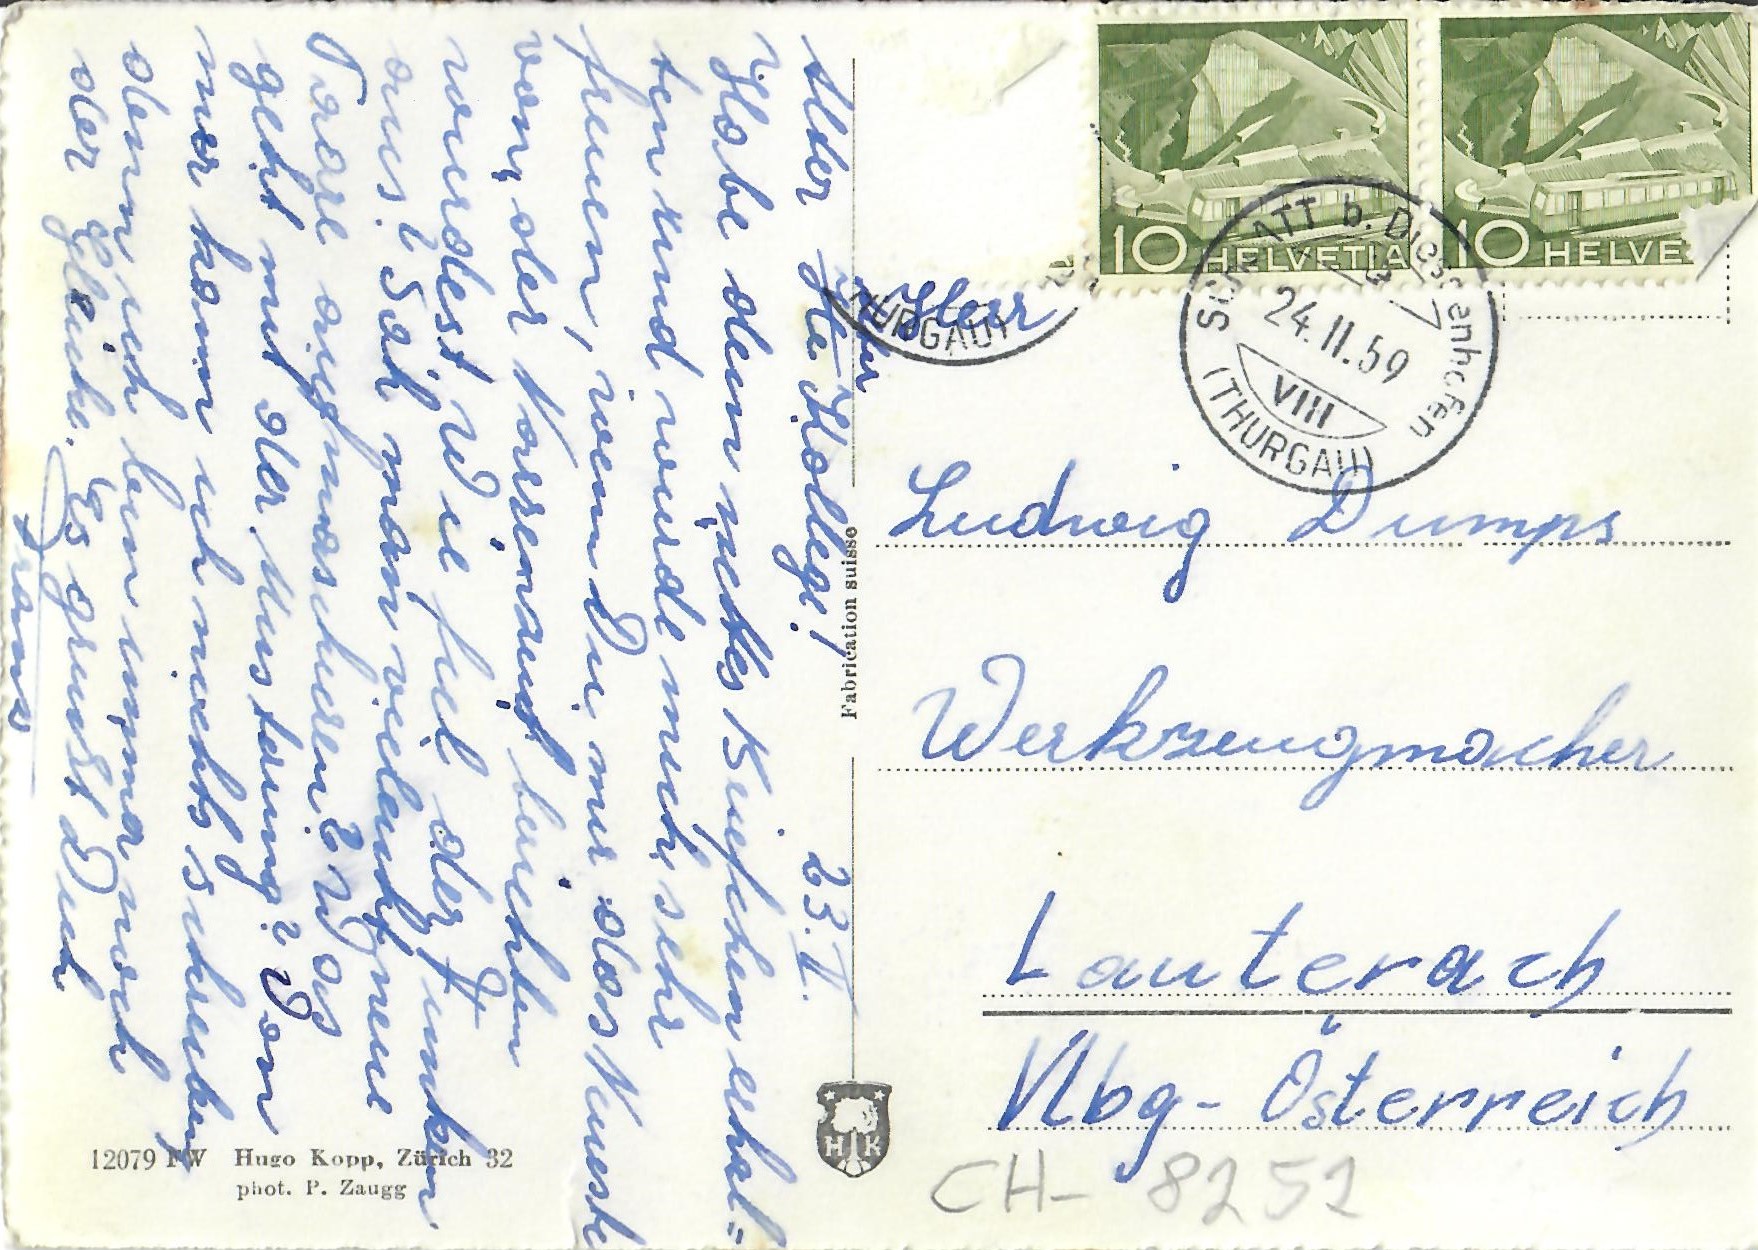 Alter Kollege! 23. II.
Habe dein nettes Briefchen erhal=
ten und würde mich sehr
freuen, wenn Du mir das Neueste
von der Vorsenaust berichten
würdest. Wie fiel der Funken
aus? Sah man vielleicht neue
Paare aufmarschieren? Was
geht mit der Musterung? Von
mir kann ich nichts schreiben
denn ich bin immer noch
der Gleiche. Es grüsst Dich
Frans
Fabrication suisse
HK
12079 FW Hugo Kopp, Zürich 32
phot. P. Zaugg
10 HELVETIA
10 HELVE
(THURGAU)
SCHLATT b. Diessenhofen
24.II.59
VIII
(THURGAU)
Herr
Ludwig Dumps
Werkzeugmacher
Lauterach
Vlbg- Österreich
CH- 8252